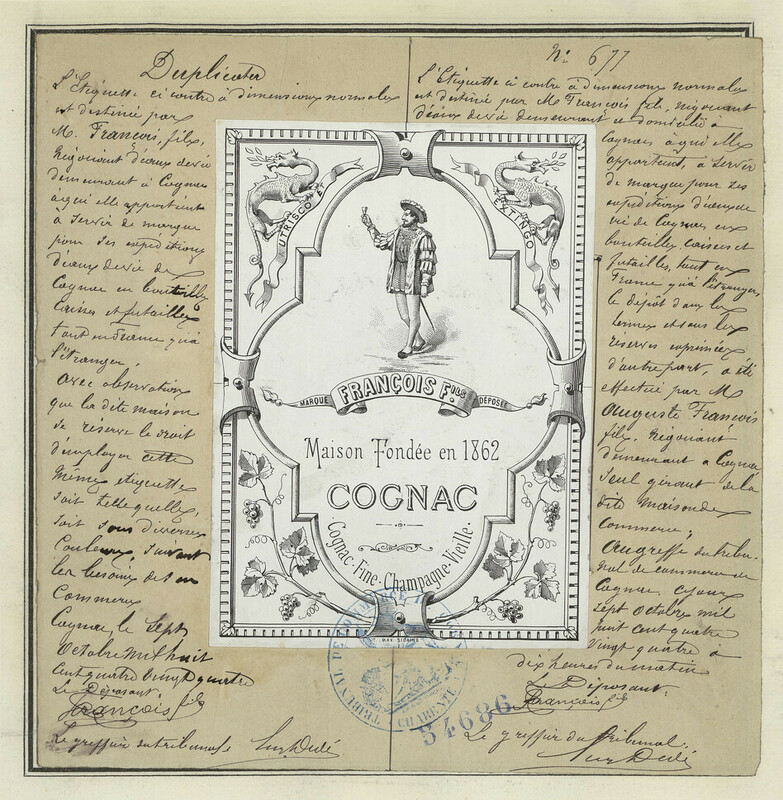 Duplicata
L'Etiquette ci contre à dimensions normales
est destinée par
M. François, fils,
Négociant d'eaux de vie
demeurant à Cognac
à qui elle appartient
à servir de marque
pour ses expéditions
d'eaux de vie de
Cognac en bouteilles
Caisses et futailles
tant en France qu'à
l'étranger,
Avec observation
que la dite maison
se réserve le droit
d'employer cette
Même etiquette
soit telle quelle,
soit sous diverses
Couleurs, suivant
les besoins de son
Commerce
Cognac, le Sept
Octobre mil huit
cent quatre vingt quatre
Le Déposant
François fils
Le greffier du tribunal
N° 677
L'Etiquette ci contre à dimensions normales
est destinée par M. François fils, négociant
d'eaux de vie demeurant et domicilié à
Cognac à qui elle
appartient, à servir
de marque pour ses
expéditions d'eaux de
vie de Cognac en
bouteilles, caisses et
futailles, tant en
France qu'à l'étranger
le dépôt dans les
termes et sous les
réserves exprimées
d'autre part, a été
effectué par M
Auguste François
fils, Négociant
demeurant à Cognac
seul gérant de la
dite Maison de
Commerce;
Au greffe du tribu-
nal de commerce de
Cognac, ce jour
sept Octobre mil
huit cent quatre
vingt quatre à
dix heures du matin
Le Déposant.
François fils
Le greffier du tribunal.
UTRISCO ET
EXTINGO
MARQUE FRANÇOIS FILS DÉPOSÉE
Maison Fondée en 1862
COGNAC
Cognac-Fine-Champagne-Vieille
TRIBUNAL DE COMMERCE
CHARENTE
54686